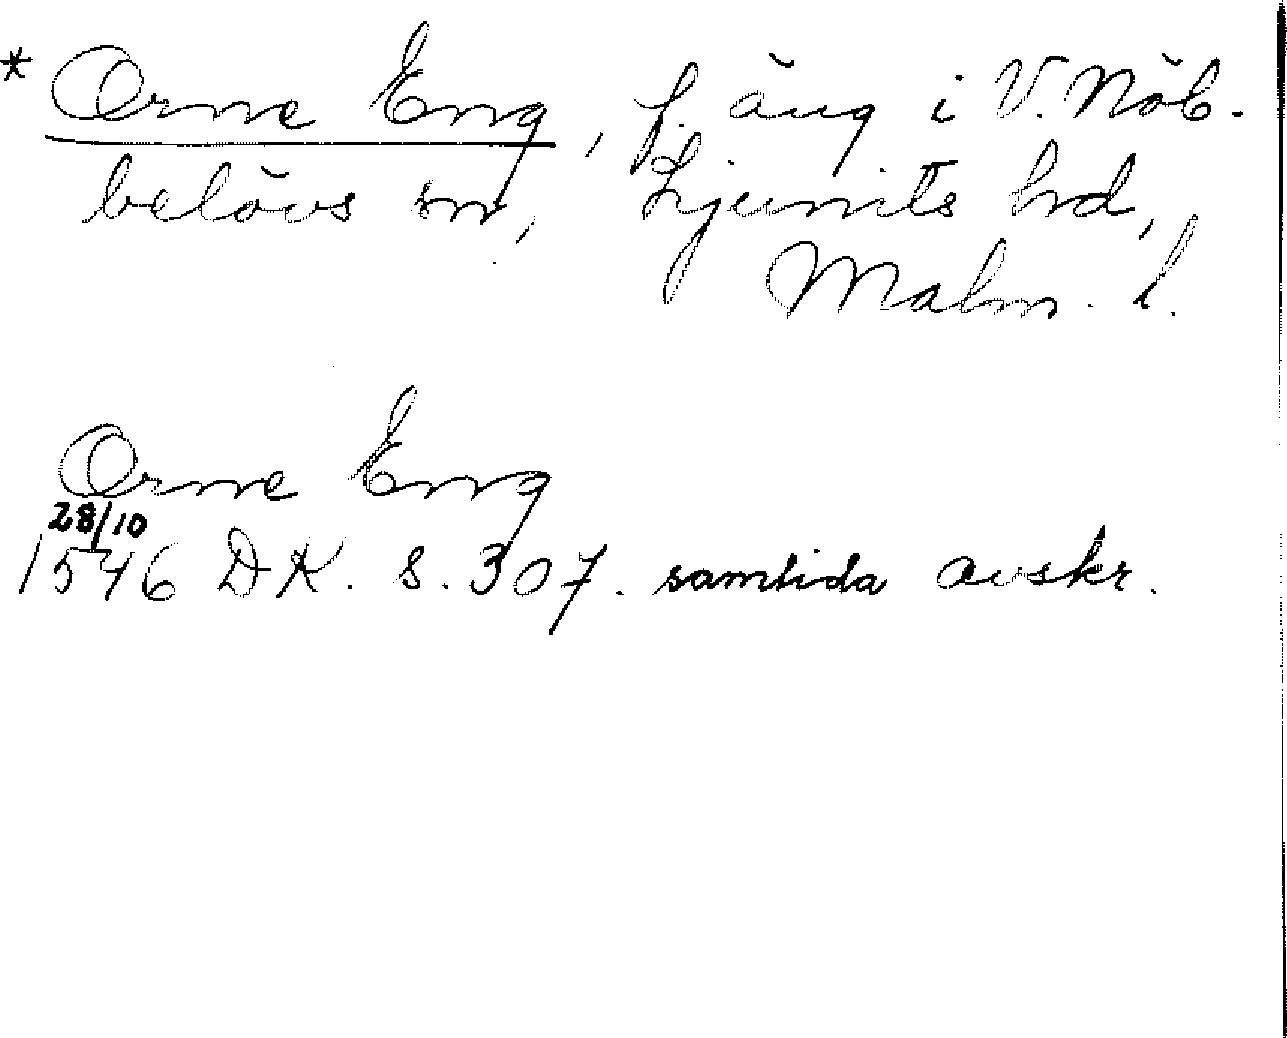 * Orne Eng, f. äng i V. Nöb-
belövs sn, Ljunits hrd,
Malm. l.
Orne Eng
28/10
1546 DK. s. 307. samtida avskr.